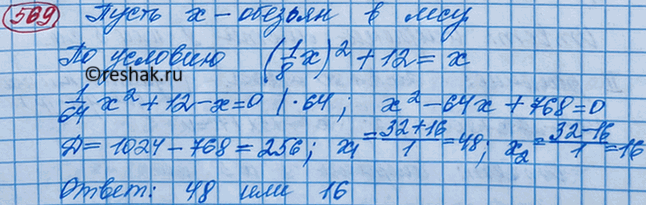 569 Пусть x - обезьян в лесу.
По условию (1/8 x)² + 12 = x
1/64 x² + 12 - x = 0 | · 64 ; x² - 64x + 768 = 0
Д = 1024 - 768 = 256 ; x₁ = (32+16)/1 = 48 ; x₂ = (32-16)/1 = 16
Ответ: 48 или 16
©reshak.ru